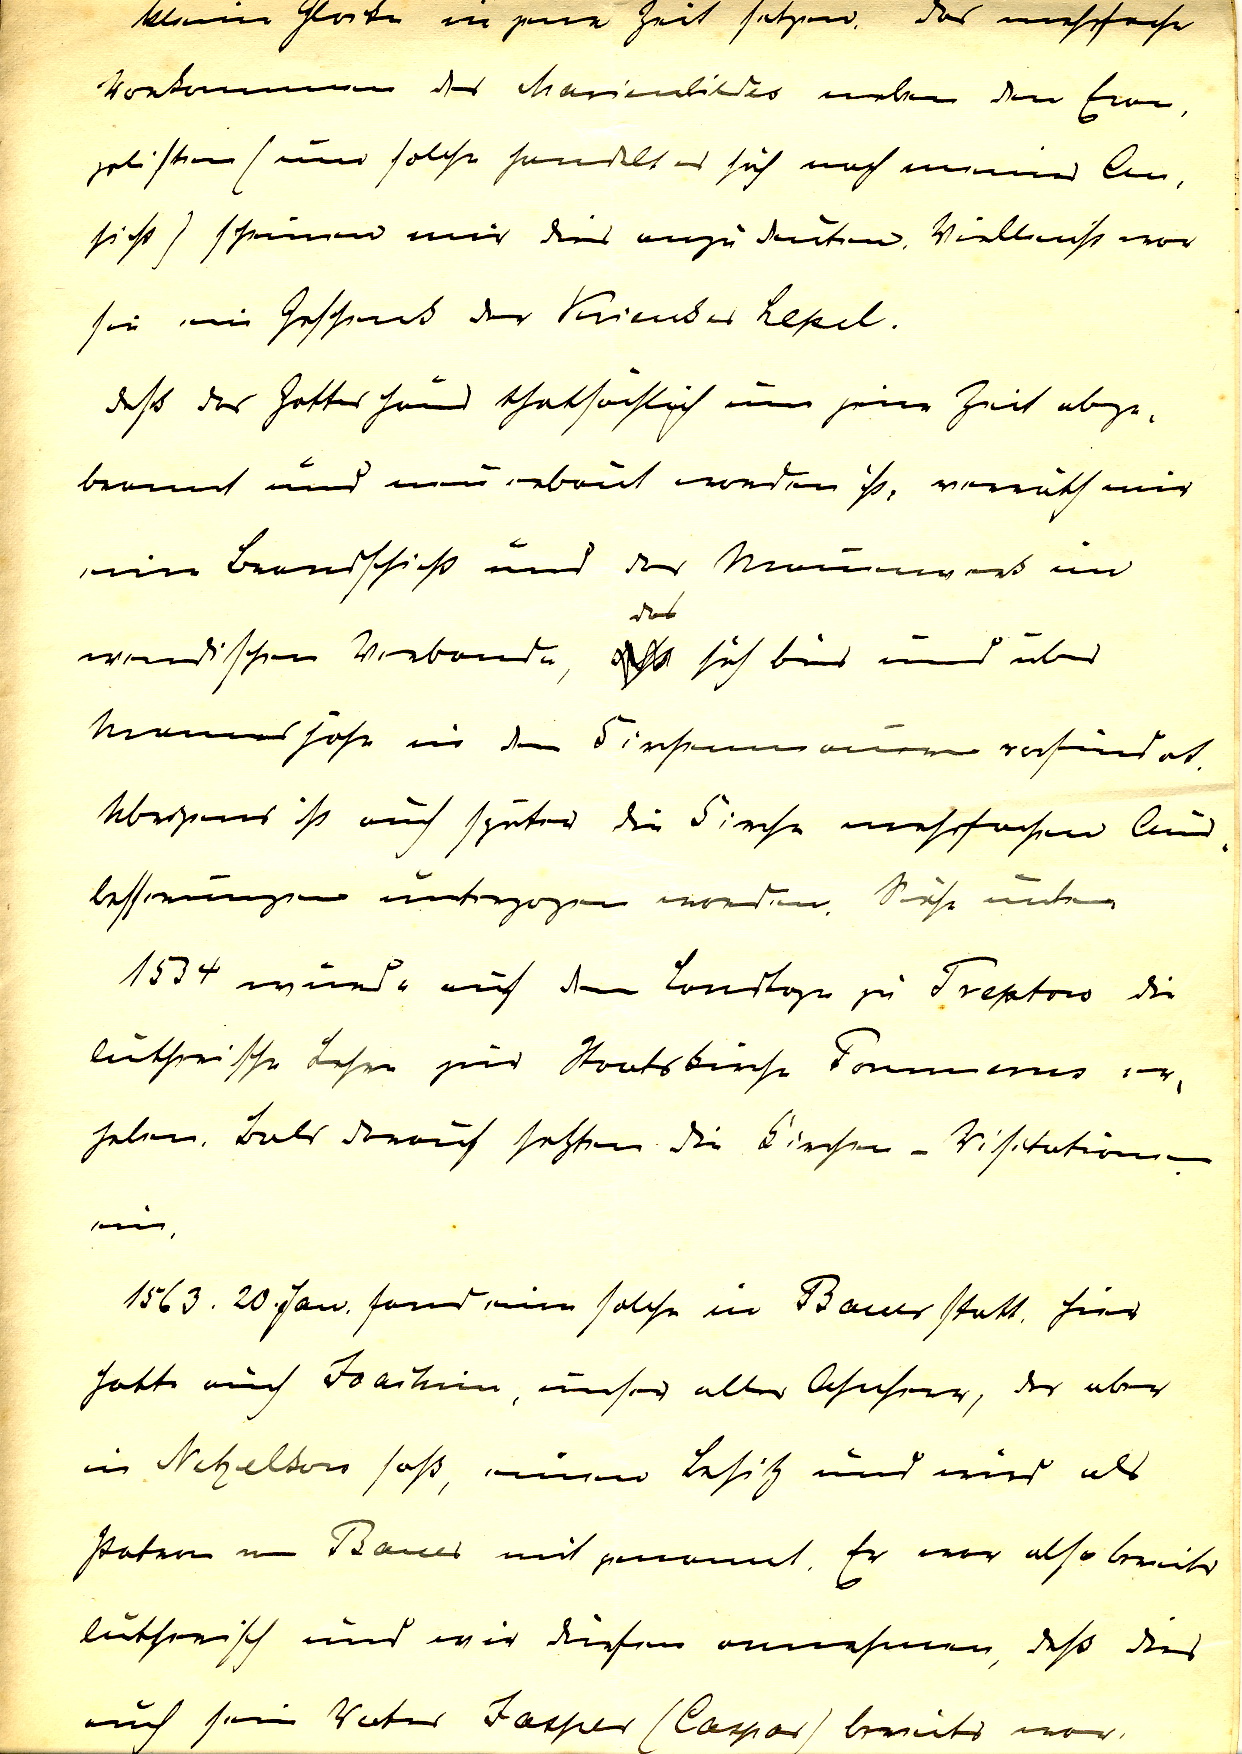 kleine Glocke in jene Zeit setzen. Das mehrfache
Vorkommen des Marienbildes neben den Evan,
gelisten (um solche handelt es sich nach meiner An,
sicht) scheinen mir dies anzudeuten. Vielleicht war
sie ein Geschenk der Krienker Lepel.
Daß das Gotteshaus thatsächlich um jene Zeit abge,
brannt und neu erbaut worden ist, verräth mir
eine Brandschicht und das Mauerwerk im
wendischen Verbande, das sich bis und über
Manneshöhe in den Kirchenmauern vorfindet.
Übrigens ist auch später die Kirche mehrfachen Aus,
besserungen unterzogen worden. Siehe unten
1534 wurde auf dem Landtage zu Treptow die
lutherische Lehre zur Staatskirche Pommerns er,
hoben. Bald darauf setzten die Kirchen-Visitationen
ein.
1563. 20. Jan. fand eine solche in Bauer statt. Hier
hatte auch Joachim, unser aller Ahnherr, der aber
in Netzelkow saß, einen Besitz und wird als
Patron von Bauer mit genannt. Er war also bereits
lutherisch und wir dürfen annehmen, daß dies
auch sein Vater Jasper (Caspar) bereits war.